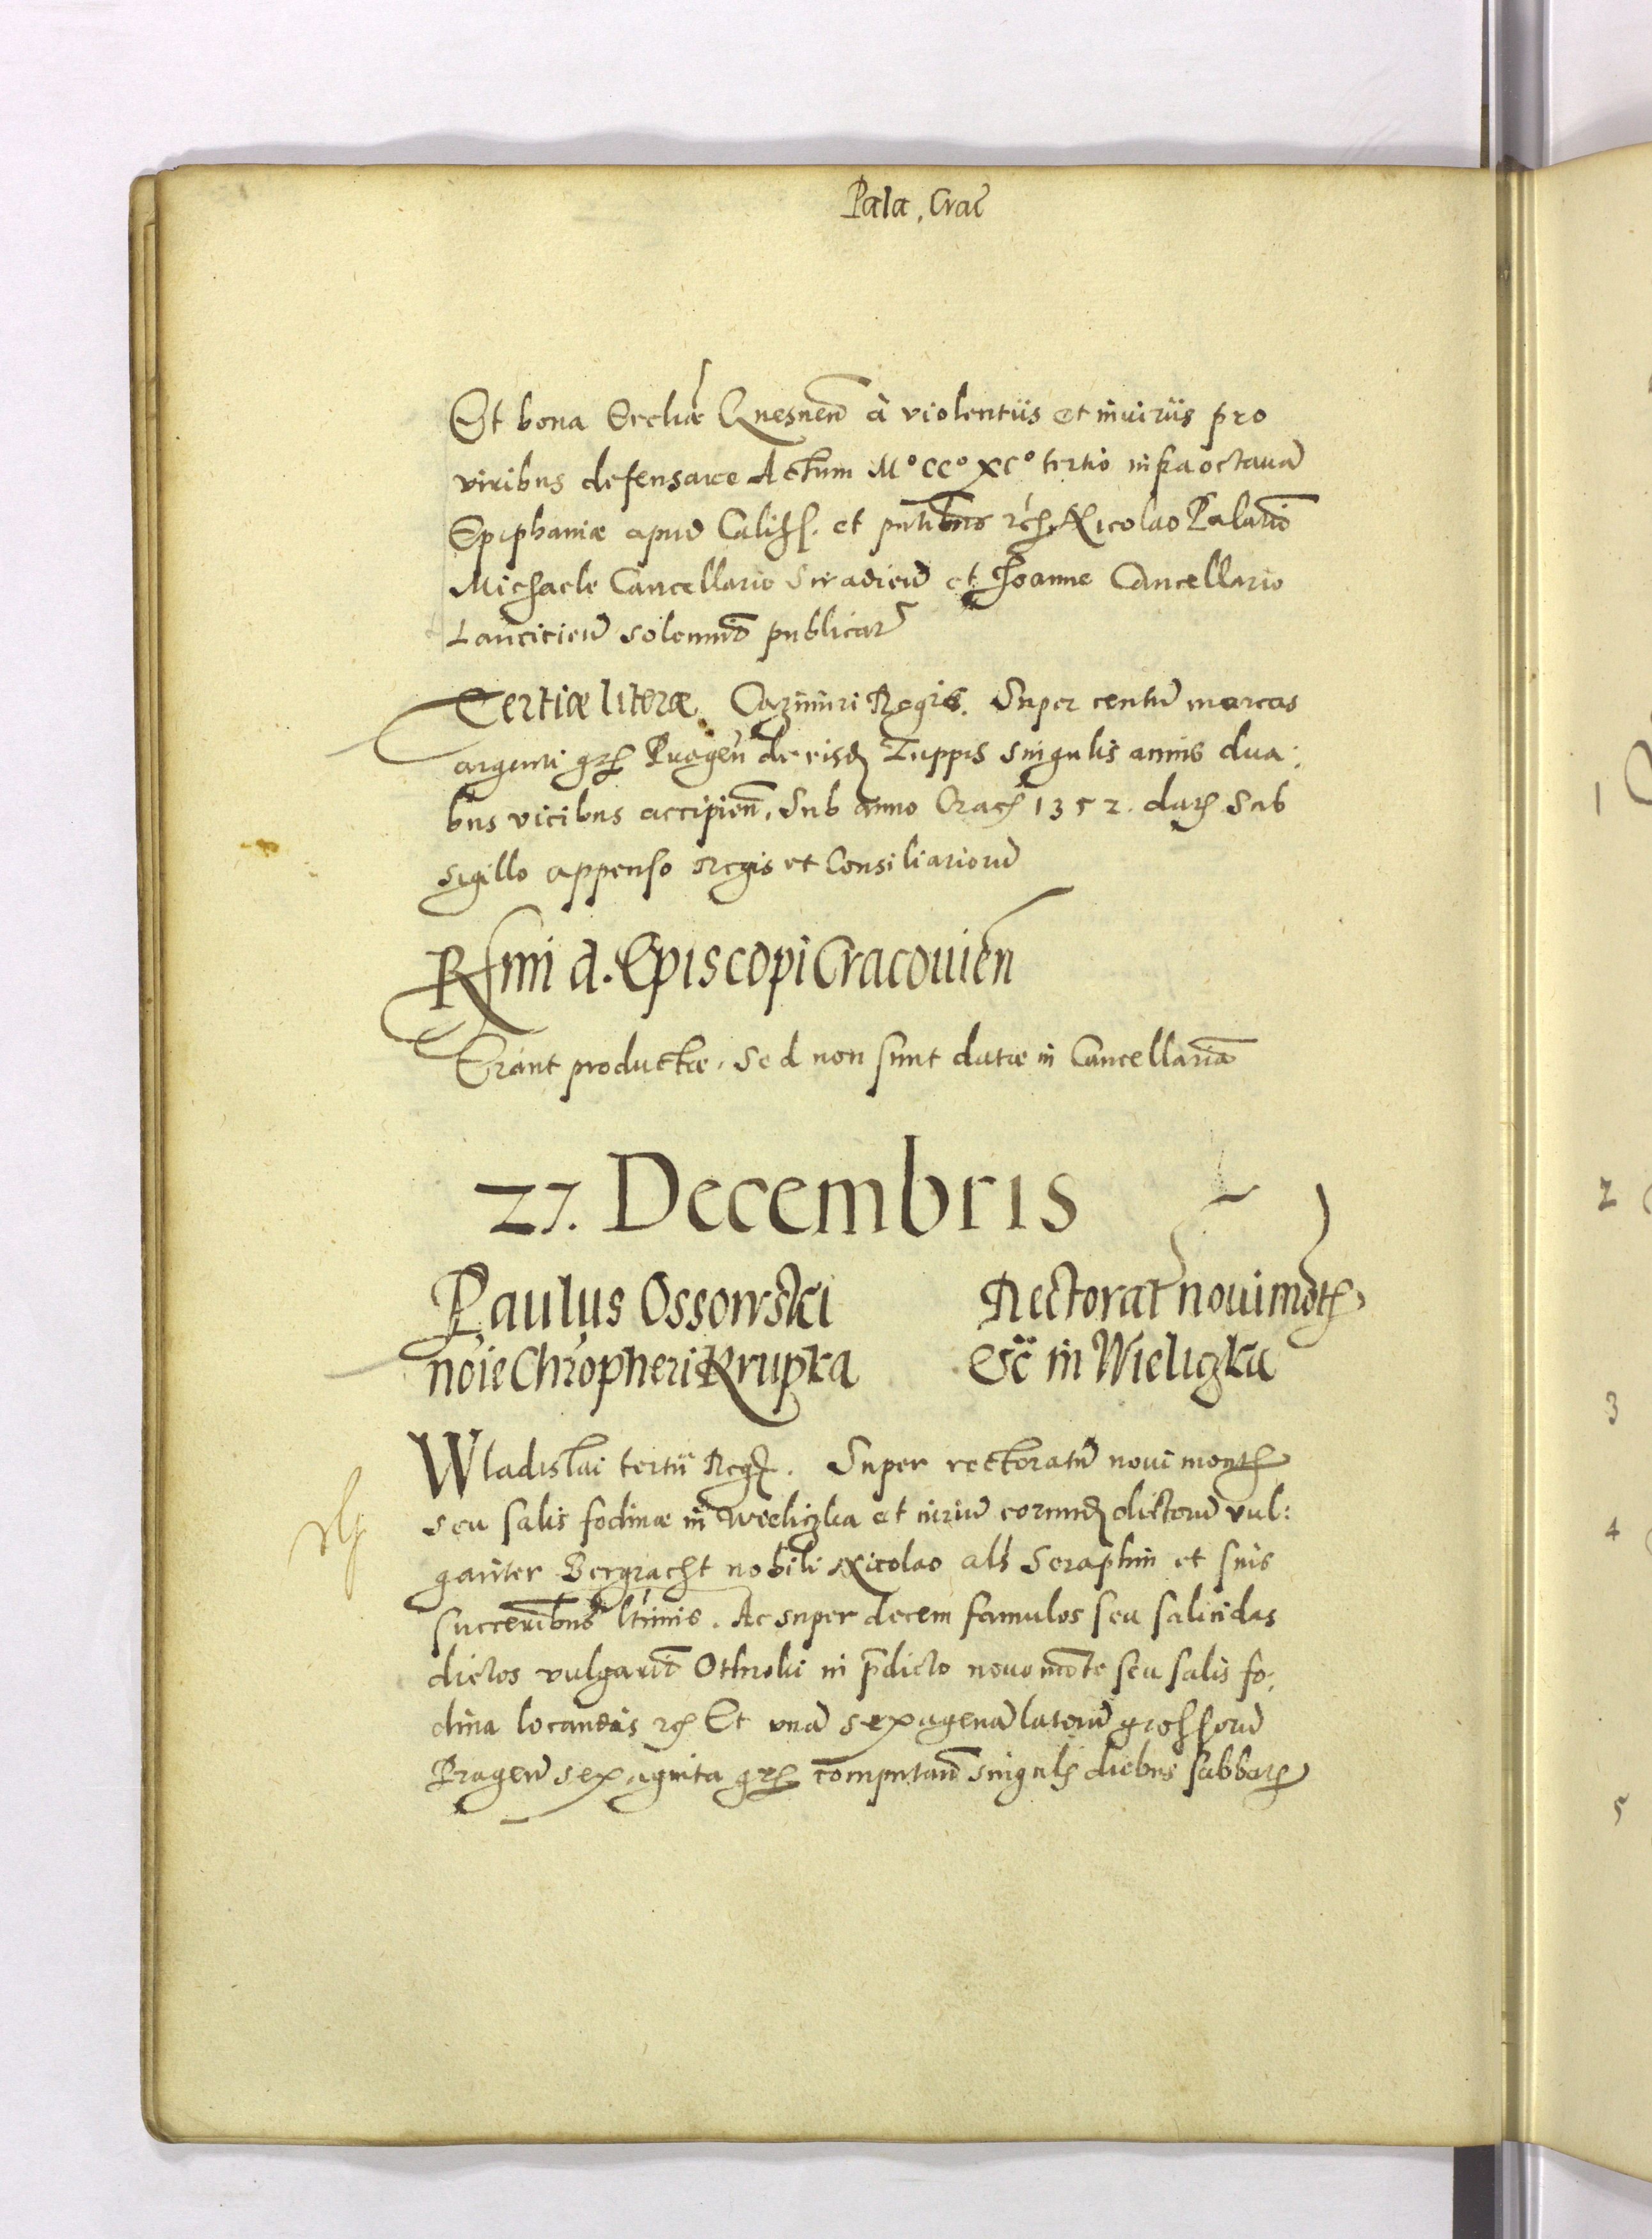 Pala. Crac̃
Et bona Eccliæ Gnesneñ à violentiis et iniuriis pro
viribus defensare Actum Mº CCº XCº tertio infra octauã
Epiphaniæ apud Calissz. et pñtibus rc̃ Nicolao Palatiõ
Michaele Cancellario Siradieñ et Joanne Cancellario
Lancicieñ solenniõ publicar̃
Tertiæ literæ Cazimiri Regis. Super centũ marcas
argenti grs̃ Prageñ de eisdẽ Zuppis singulis annis dua:
bus vicibus accipieñ. Sub anno Crac̃ 1352. dat̃ Sub
sigillo appenso regis et Consiliariorũ
Rsmi d. Episcopi Cracouień
Erant productæ. Sed non sunt datæ in Cancellariã
27. Decembris
Paulus Ossowski
noïe Chrõpheri Krupka
Rectorat̃ noui mõtĩs
Etc̃ in Wieliczka
Wladislai tertii Regis. Super rectoratũ noui montis
seu salis fodinæ in Wieliczka et iuriũ eorundẽ dictorũ vul:
gariter Bergracht nobili Nicolao als Seraphin et suis
succerib̃us ltimis. Ac super decem famulos seu salicidas
dictos vulgariõ Othroki in p̃dicto nouo mõte seu salis fo:
dina locandis rc̃ Et vnã sexagenã latorũ grossorũ
Prageñ sexaginta grs̃ computañ singulis diebus sabbatis